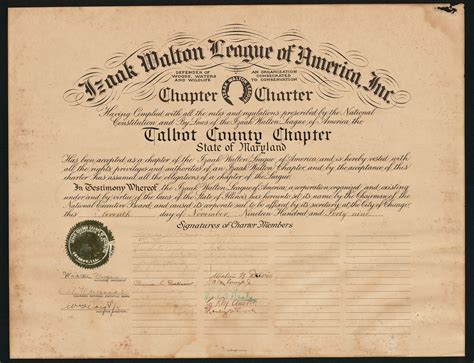 Izaak Walton League of America, Inc.
DEFENDER OF
WOODS, WATERS
AND WILDLIFE
AN ORGANIZATION
CONSECRATED
TO CONSERVATION
Chapter Charter
Having Complied with all the rules and regulations prescribed by the National
Constitution and By Laws of the Izaak Walton League of America, the
Talbot County Chapter
State of Maryland
Has been accepted as a chapter of the Izaak Walton League of America and is hereby vested with
all the rights, privileges and authorities of an Izaak Walton Chapter, and by the acceptance of this
charter has assumed all the obligations of a chapter of the League.
In Testimony Whereof the Izaak Walton League of America, a corporation organized and existing
under and by virtue of the laws of the State of Illinois, has hereunto set its name by the Chairman of the
National Executive Board, and caused its corporate seal to be affixed by its secretary at the City of Chicago,
this Seventh day of November, Nineteen Hundred and Forty nine
Signatures of Charter Members